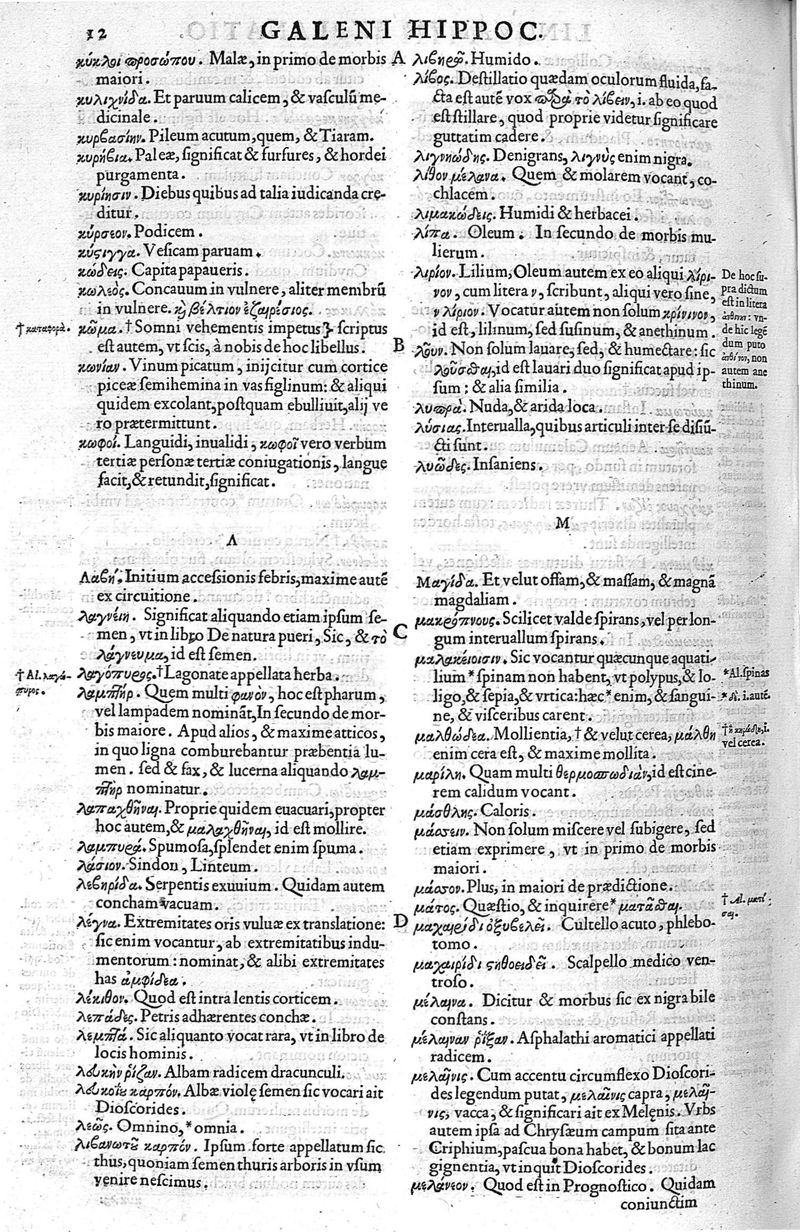 12 GALENI HIPPOC.
κύκλοι προσώπου. Malæ, in primo de morbis
maiori.
κυλιχνίδα. Et paruum calicem, & vasculũ me-
dicinale.
κυρβασίην. Pileum acutum, quem, & Tiaram.
κυρήβια. Paleæ, significat & furfures, & hordei
purgamenta.
κυρίησιν. Diebus quibus ad talia iudicanda cre-
ditur.
κύρσεον. Podicem.
κύςιγγα. Vesicam paruam.
κώδεις. Capita papaueris.
κωλεὸς. Concauum in vulnere, aliter membrũ
in vulnere. κỳ βέλτιον ἐξαιρέσιος.
† καταφορὰ.
κῶμα. †Somni vehementis impetus} scriptus
est autem, vt scis, à nobis de hoc libellus.
κωνίαν. Vinum picatum, inijcitur cum cortice
piceæ semihemina in vas figlinum: & aliqui
quidem excolant, postquam ebulliuit, alij ve
ro prætermittunt.
κωφοί. Languidi, inualidi, κωφοῖ vero verbum
tertiæ personæ tertiæ coniugationis, langue
facit, & retundit, significat.
Λ
Λαβή. Initium accessionis febris, maxime autẽ
ex circuitione.
λαγνείη. Significat aliquando etiam ipsum se-
men, vt in libro De natura pueri, Sic, & τὸ
λάγνευμα, id est semen.
† Al. λαγό-
πυρος.
λαγόπυρος. †Lagonate appellata herba.
λαμπτὴρ. Quem multi φανὸν, hoc est pharum,
vel lampadem nominãt, In secundo de mor-
bis maiore. Apud alios, & maxime atticos,
in quo ligna comburebantur præbentia lu-
men. sed & fax, & lucerna aliquando λαμ-
πτὴρ nominatur.
λαπαχθῆναι. Proprie quidem euacuari, propter
hoc autem, & μαλαχθῆναι, id est mollire.
λαμπυρά. Spumosa, splendet enim spuma.
λάσιον. Sindon, Linteum.
λεβηρίδα. Serpentis exuuium. Quidam autem
concham vacuam.
λέγνα. Extremitates oris vuluæ ex translatione:
sic enim vocantur, ab extremitatibus indu-
mentorum: nominat, & alibi extremitates
has ἀμφίδεα.
λέκιθον. Quod est intra lentis corticem.
λεπάδες. Petris adhærentes conchæ.
λεμπτά. Sic aliquanto vocat rara, vt in libro de
locis hominis.
λευκὴν ῥίζαν. Albam radicem dracunculi.
λευκοῖς καρπόν. Albæ violę semen sic vocari ait
Dioscorides.
λεῶς. Omnino, *omnia.
λιβανωτοῦ καρπόν. Ipsum forte appellatum sic
thus, quoniam semen thuris arboris in vsum
venire nescimus.
A
λιβηρῷ. Humido.
λίβος. Destillatio quædam oculorum fluida, fa-
cta est autẽ vox παρὰ τὸ λίβειν, i. ab eo quod
est stillare, quod proprie videtur significare
guttatim cadere.
λιγνιώδης. Denigrans, λιγνὺς enim nigra.
λίθον μέλανα. Quem & molarem vocant, co-
chlacem.
λιμακώδεις. Humidi & herbacei.
λίπα. Oleum. In secundo de morbis mu-
lierum.
λιρίον. Lilium, Oleum autem ex eo aliqui λίρι-
νον, cum litera ν, scribunt, aliqui vero sine,
ν λίριον. Vocatur autem non solum κρίνινον,
id est, lilinum, sed susinum, & anethinum.
De hoc su-
pra dictum
est in litera
de hic legẽ
dum puto
ἀνθίνον, non
autem ane
thinum.
B
λοῦν. Non solum lauare, sed, & humectare: sic
λοῦσθαι, id est lauari duo significat apud ip-
sum: & alia similia.
λυπρά. Nuda, & arida loca.
λύσιας. Interualla, quibus articuli inter se disiũ-
cti sunt.
λυῶδες. Insaniens.
M
Μαγίδα. Et velut offam, & massam, & magnã
magdaliam.
C
μακρόπνους. Scilicet valde spirans, vel per lon-
gum interuallum spirans.
μαλακείοισιν. Sic vocantur quæcunque aquati-
lium *spinam non habent, vt polypus, & lo-
ligo, & sepia, & vrtica: hæc* enim, & sangui-
ne, & visceribus carent.
*Al. spinas
*Al. i. autẽ.
μαλθώδεα. Mollientia, † & velut cerea, μάλθη
enim cera est, & maxime mollita.
vel cerea.
μαρίλη. Quam multi θερμοσποδιὰν, id est cine-
rem calidum vocant.
μάσθλης. Caloris.
μάσσειν. Non solum miscere vel subigere, sed
etiam exprimere, vt in primo de morbis
maiori.
μάσσον. Plus, in maiori de prædictione.
μάτος. Quæstio, & inquirere* ματᾶσθαι.
D
μαχαιρίδι ὀξυβελεῖ. Cultello acuto, phlebo-
tomo.
μαχαιρίδι ςηθοειδεῖ. Scalpello medico ven-
troso.
μέλαινα. Dicitur & morbus sic ex nigra bile
constans.
μέλαιναν ῥίζαν. Asphalathi aromatici appellati
radicem.
μελαῖνις. Cum accentu circumflexo Dioscori-
des legendum putat, μελαῖνις capra, μελαῖ-
νις, vacca, & significari ait ex Melęnis. Vrbs
autem ipsa ad Chrysæum campum sita ante
Criphium, pascua bona habet, & bonum lac
gignentia, vt inquit Dioscorides.
μελάνεον. Quod est in Prognostico. Quidam
coniunctim